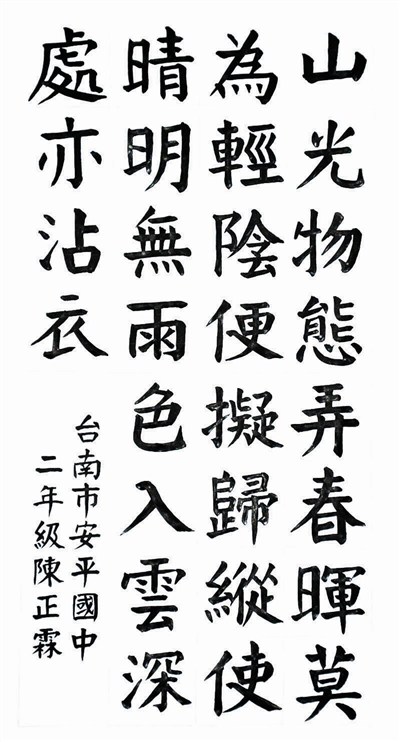 山光物態弄春暉莫
為輕陰便擬歸縱使
晴明無雨色入雲深
處亦沾衣
台南市安平國中
二年級陳正霖